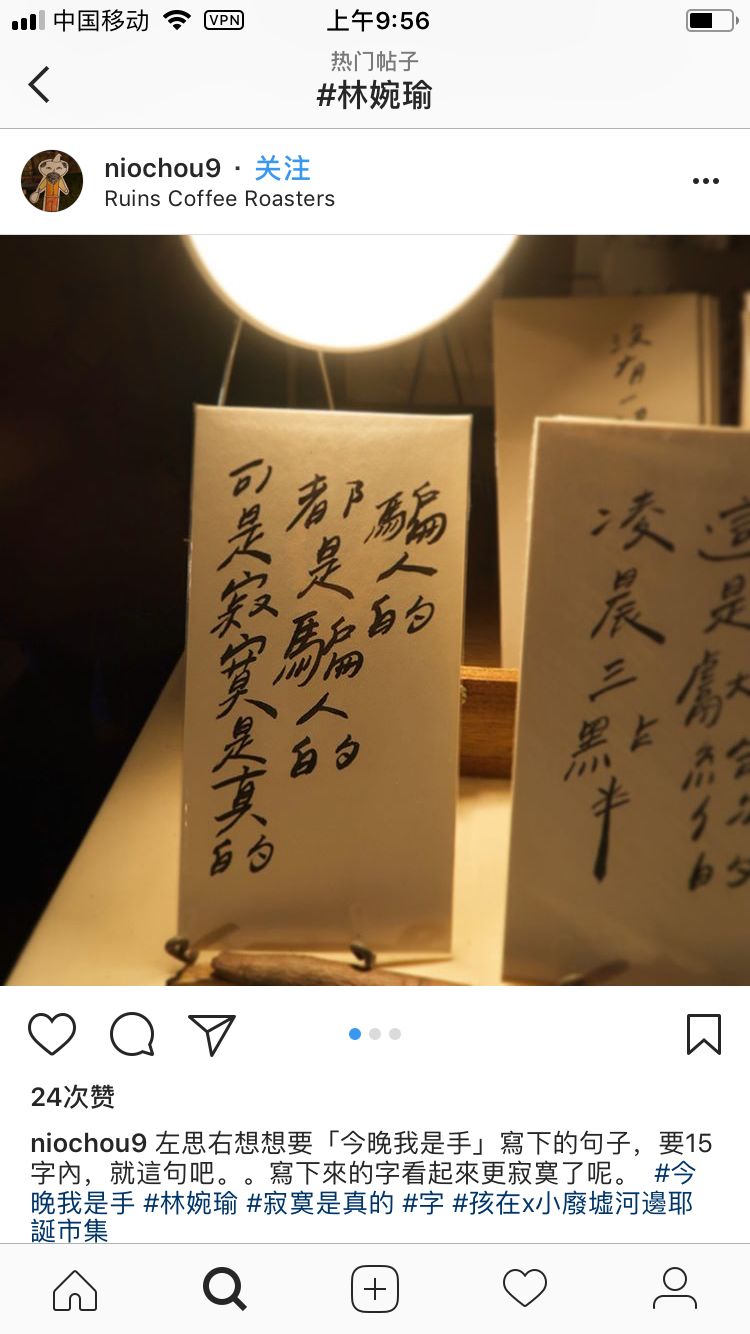 中国移动 VPN 上午9:56
热门帖子
#林婉瑜
niochou9 · 关注
Ruins Coffee Roasters
騙人的
都是騙人的
可是寂寞是真的
沒有一
這是
凌晨三點半
24次赞
niochou9 左思右想想要「今晚我是手」寫下的句子，要15
字內，就這句吧。。寫下來的字看起來更寂寞了呢。 #今
晚我是手 #林婉瑜 #寂寞是真的 #字 #孩在x小廢墟河邊耶
誕市集